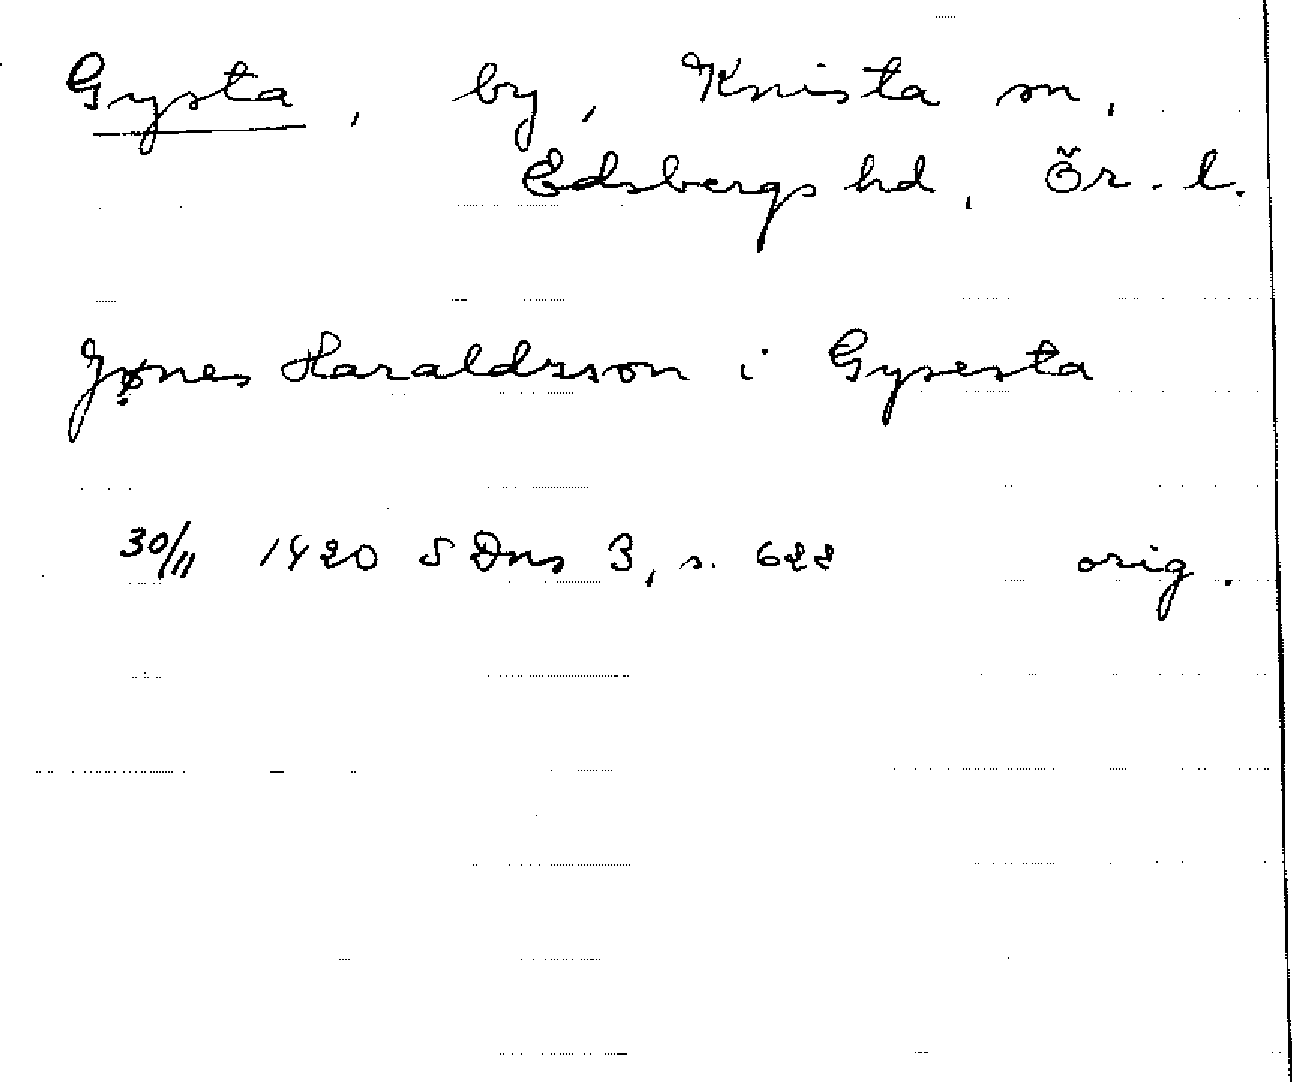 Gysta, by, Knista sn,
Edsbergs hd, Ör. l.
Jønes Haraldsson i Gysesta
30/11 1420 SDns 3, s. 622 orig.